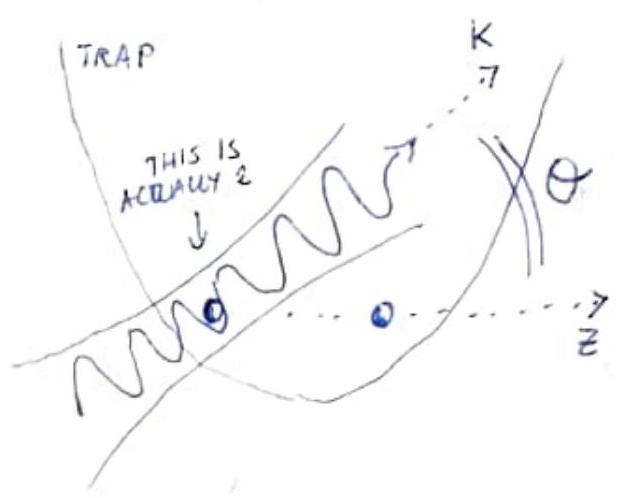 TRAP
K
THIS IS
ACTUALLY 2
θ
Z